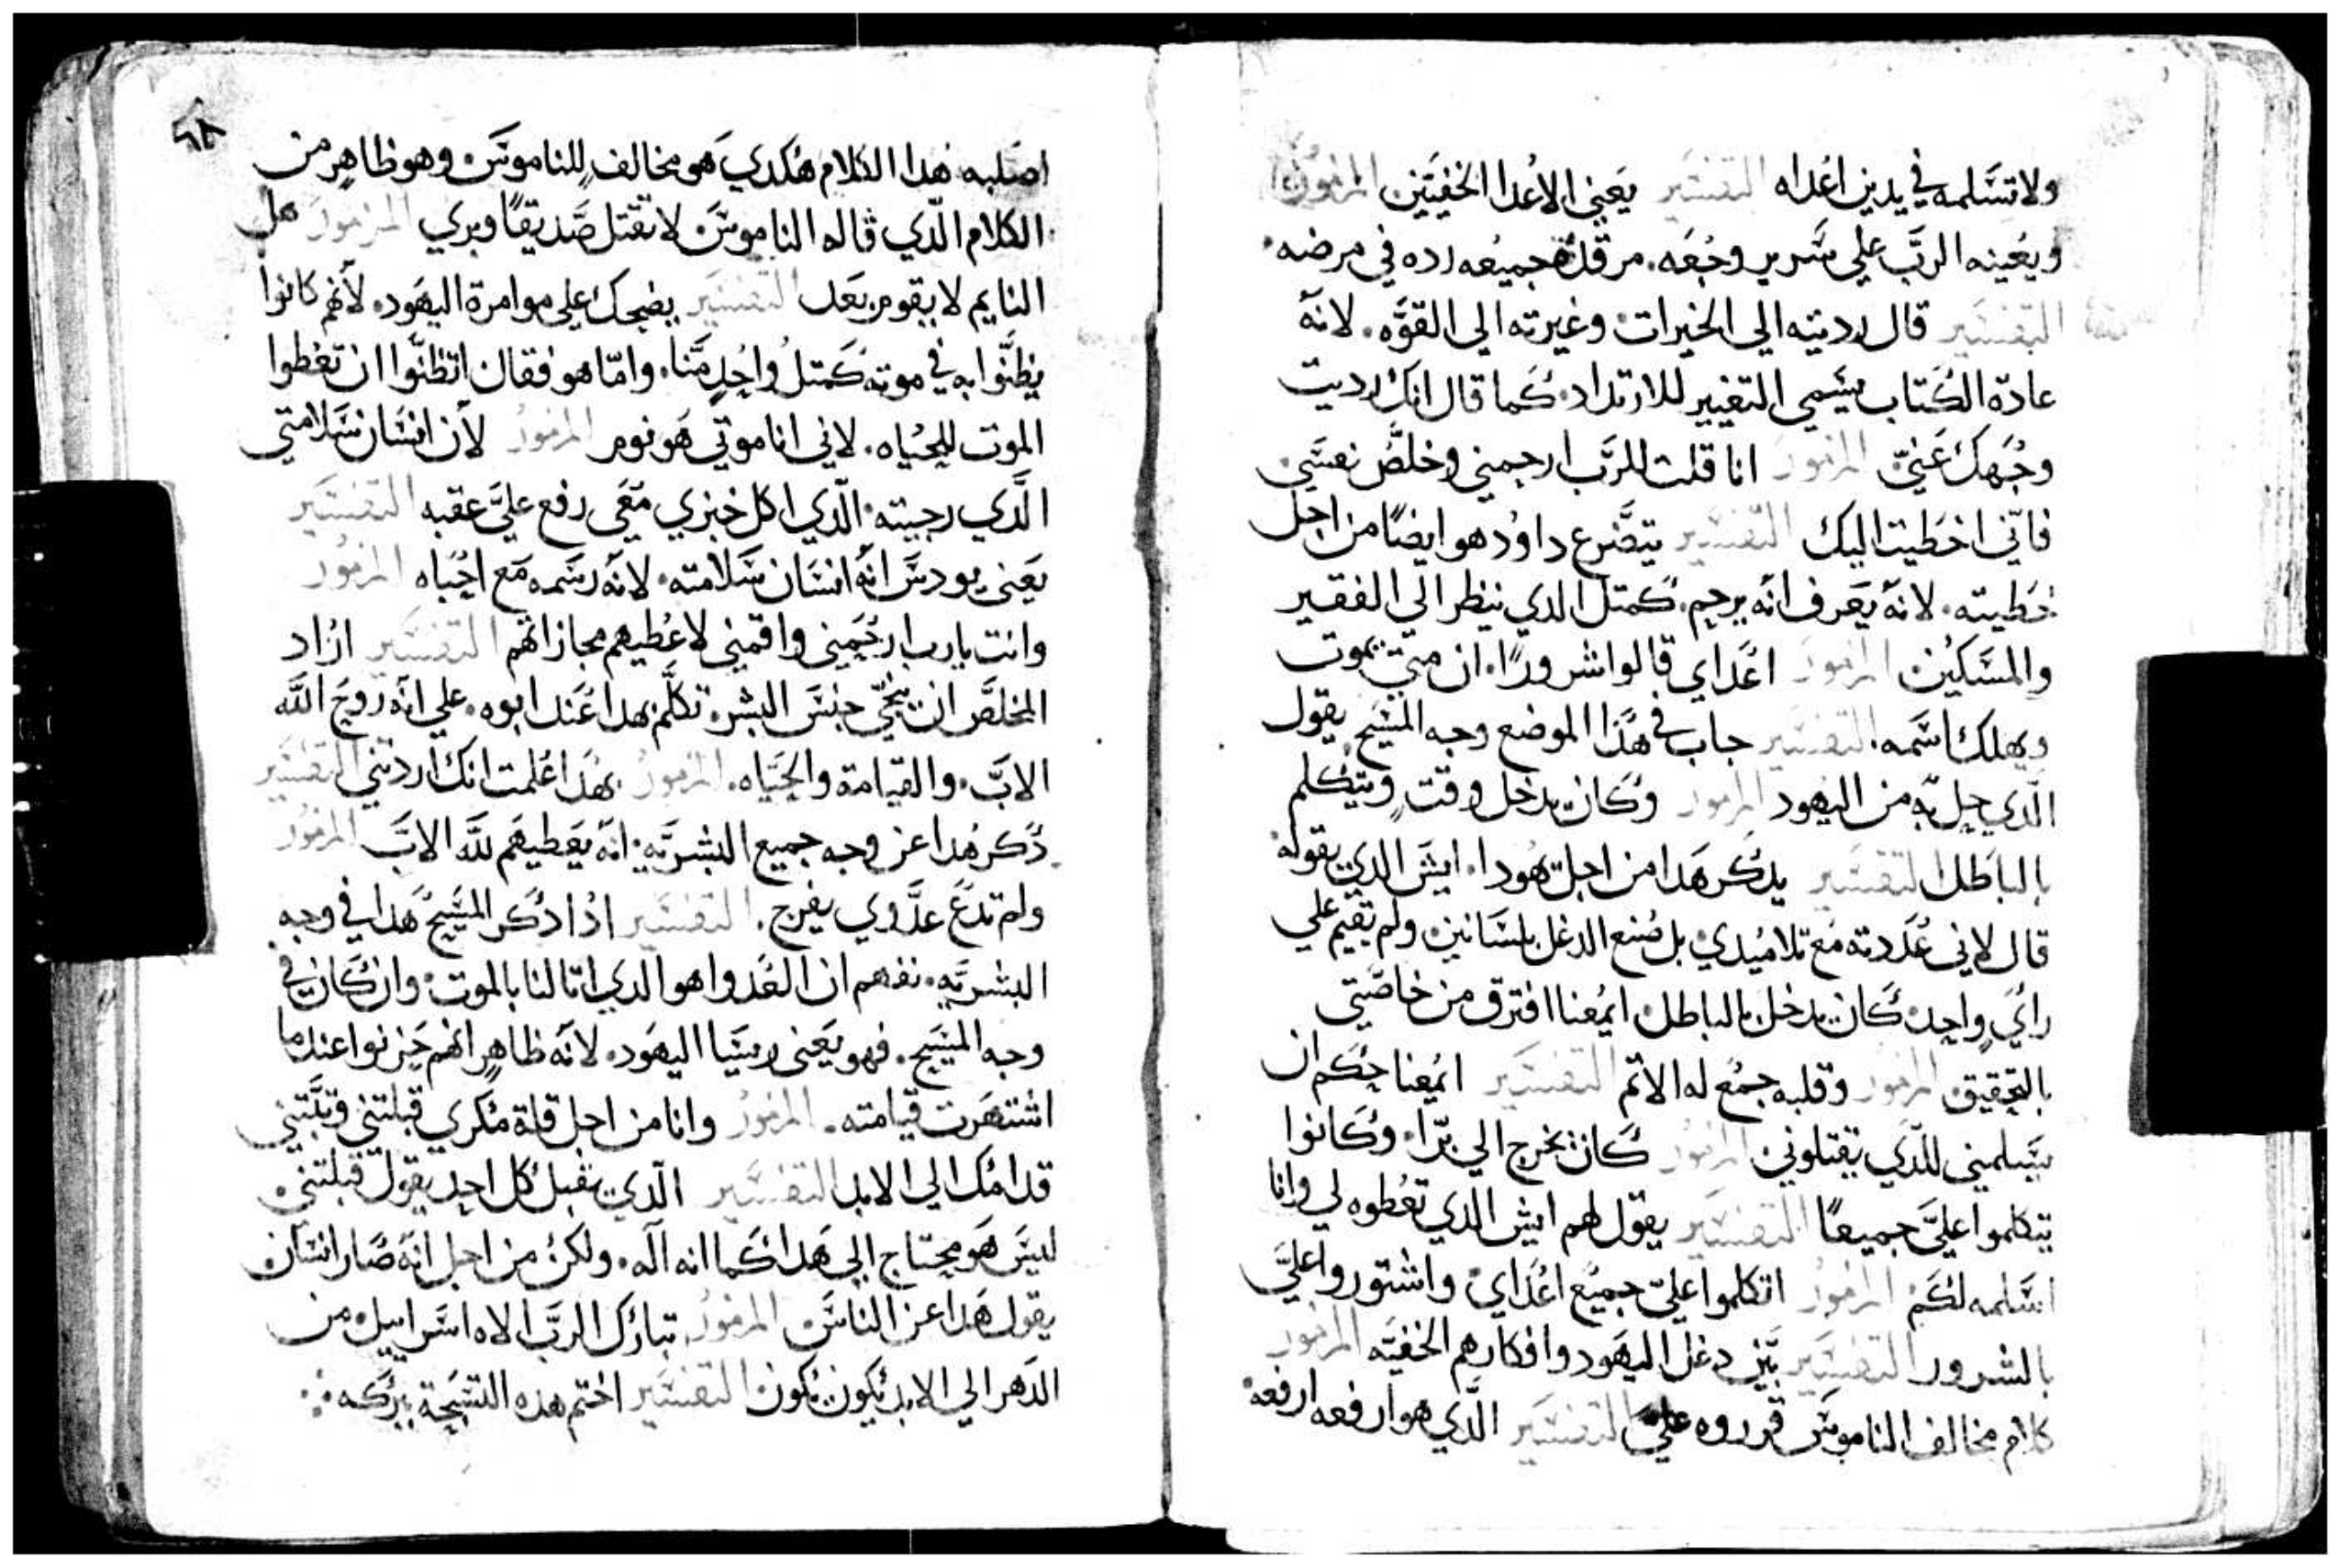 ولا تسلمه في يدين اعداه التفسير يعني الاعدا الخفيين المزمور
ويعينه الرب علي سرير وجعه. مرقده جميعه رده في مرضه.
التفسير قال رديته الي الخيرات وغيرته الي القوه. لانه
عادة الكتاب يسمي التغيير للارتداد. كما قال انك رديت
وجهك عني المزمور انا قلت للرب ارحمني وخلص نفسي
فاني اخطيت اليك التفسير يتضرع داود هو ايضا من اجل
خطيته. لانه يعرف انه يرحم. كمتل الدي ينظر الي الفقير
والمسكين المزمور اعداي قالوا شرورا. ان متي يموت
ويهلك اسمه. التفسير جاب في هدا الموضع وجه المسيح. يقول
الدي حل به من اليهود المزمور وكان يدخل وقت ويتكلم
بالباطل التفسير يدكر هدا من اجل يهودا. ايش الدي يقوله
قال لاني عددته مع تلاميدي بل صنع الدغل بلسانين ولم يقيم علي
راي واحد. كان يدخل بالباطل ايمعنا افترق من خاصتي
بالتحقيق المزمور وقلبه جمع له الاتم التفسير ايمعنا حكم ان
يسلمني للدي يقتلوني المزمور كان يخرج الي برا. وكانوا
يتكلموا علي جميعا التفسير يقول لهم ايش الدي تعطوه لي وانا
اسلمه لكم المزمور اتكلموا علي جميع اعداي واشتوروا علي
بالشرور التفسير بين دغل اليهود وافكارهم الخفيه المزمور
كلام مخالف الناموس قرروه علي التفسير الدي هو ارفعه ارفعه
٦٨
اصلبه هدا الكلام هكدي هو مخالف للناموس وهو ظاهر من
الكلام الدي قاله الناموس لا تقتل صديقا وبري المزمور هل
النايم لا يقوم بعد التفسير يضحك علي موامرة اليهود. لانهم كانوا
يظنوا به في موته كمتل واحد منا. واما هو فقال اتظنوا ان تغطوا
الموت للحياه. لاني انا موتي هو نوم المزمور لان انسان سلامتي
الدي رجيته. الدي اكل خبزي معي رفع علي عقبه التفسير
يعني يودس انه انسان سلامته. لانه رسمه مع احباه المزمور
وانت يارب ارحمني واقمني لاعطيهم مجازاتهم التفسير اراد
المخلص ان ينجي جنس البشر. تكلم بهدا عند ابوه. علي انه روح الله
الاب. والقيامة والحياه. المزمور بهدا علمت انك اردتني التفسير
دكر هدا عن وجه جميع البشريه. انه يعطيهم لله الاب المزمور
ولم تدع عدوي يفرح. التفسير ادا دكر المسيح هدا في وجه
البشريه. نفهم ان العدوا هو الدي اتا لنا بالموت. وان كان في
وجه المسيح. فهو يعني ريسا اليهود. لانه ظاهر انهم حزنوا عندما
اشتهرت قيامته. المزمور وانا من اجل قلة مكري قبلتني وتبتني
قدامك الي الابد التفسير الدي يقبل كل احد يقول قبلتني.
ليس هو محتاج الي هدا كما انه اله. ولكن من اجل انه صار انسان
يقول هدا عن الناس المزمور تبارك الرب الاه اسراييل من
الدهر الي الابد يكون يكون التفسير اختم هده التسبحة ببركه